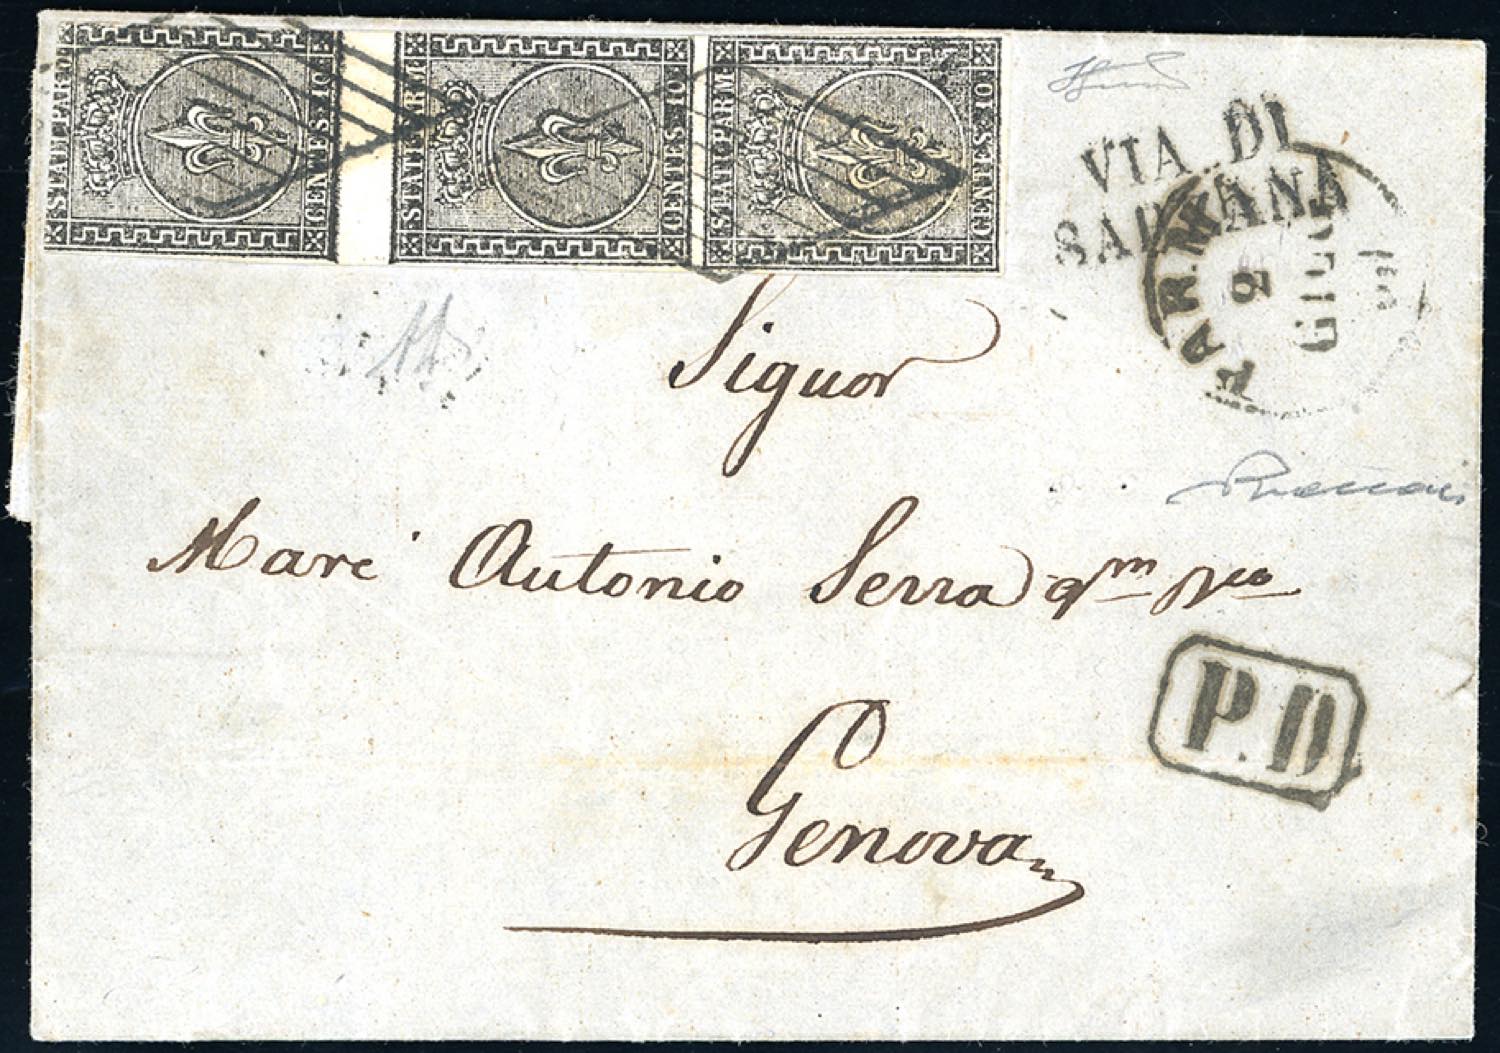 STATI PARM CENTES 10
STATI PARM CENTES 10
STATI PARM CENTES 10
VIA DI
SARZANA
PARMA
2
GIUG
Signor
Marc' Antonio Serra qm
Genova
P.D.